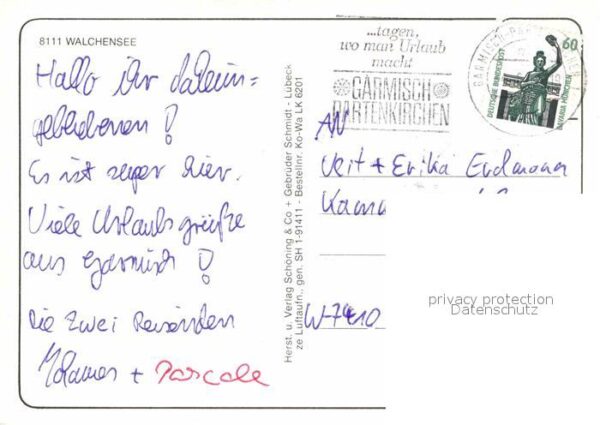 8111 WALCHENSEE
Hallo ihr daheim=
gebliebenen!
Es ist super hier.
Viele Urlaubsgrüße
aus Garmisch!
Die zwei Reisenden
+ Pascale
Herst. u. Verlag Schöning & Co + Gebrüder Schmidt - Lübeck
ze Luftaufn., gen. SH 1-91411 - Bestellnr. Ko-Wa LK 6201
...tagen,
wo man Urlaub
macht
GARMISCH
PARTENKIRCHEN
GARMISCH-PARTENKIRCHEN 1
60
DEUTSCHE BUNDESPOST
BAVARIA MÜNCHEN
AN
Veit + Erika Erdmann
W-7410
privacy protection
Datenschutz